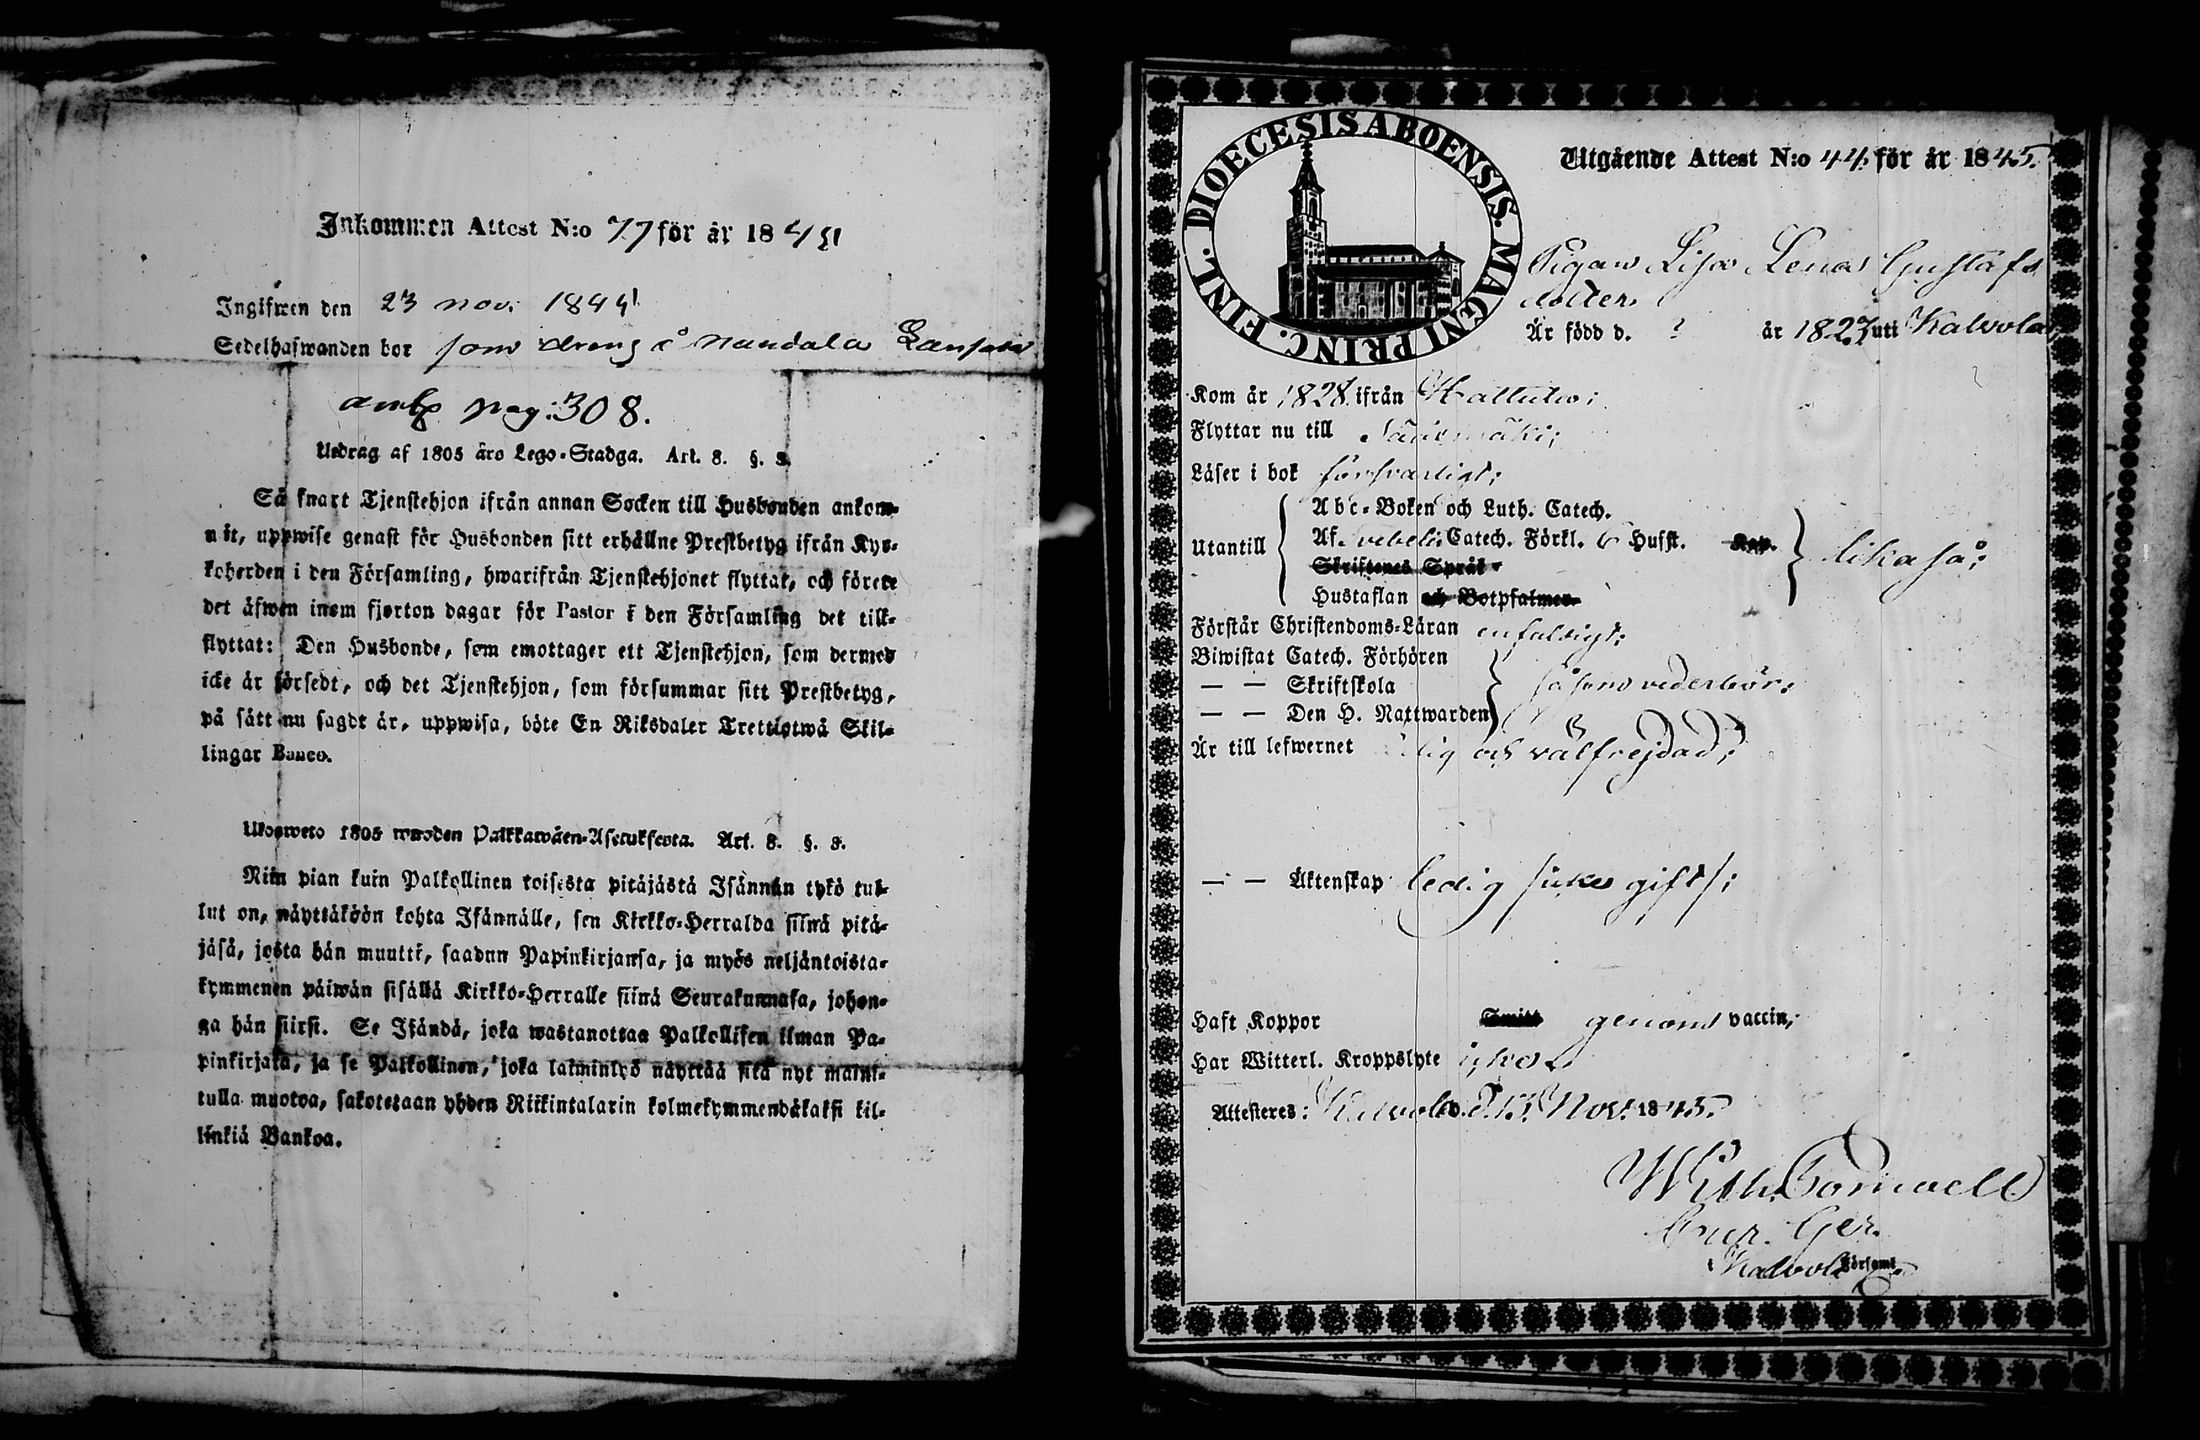 Inkommen Attest N:o 77 för år 1844
Ingifwen den 23 nov: 1844
Sedelhafwanden bor som dreng å nandala Lansala
amb pag: 308.
Utdrag af 1805 års Lego-Stadga. Art. 8. §. 3.
Så snart Tjenstehjon ifrån annan Socken till Husbonden ankom-
mit, uppwise genast för Husbonden sitt erhållne Prestbetyg ifrån Kyr-
koherden i den Församling, hwarifrån Tjenstehjonet flyttat, och förete
det äfwen inom fjorton dagar för Pastor i den Församling det till-
flyttat: Den Husbonde, som emottager ett Tjenstehjon, som dermed
icke är försedt, och det Tjenstehjon, som försummar sitt Prestbetyg,
på sätt nu sagdt är, uppwisa, böte En Riksdaler Trettiotwå Skil-
lingar Banco.
Ulosweto 1805 wuoden Palkkawäen-Asetuksesta. Art. 8. §. 3.
Niin pian kuin Palkollinen toisesta pitäjästä Isännän tykö tul-
lut on, näyttäköön kohta Isännälle, sen Kirkko-Herralda siinä pitä-
jäsä, josta hän muutti, saadun Papinkirjansa, ja myös neljäntoista-
kymmenen päiwän sisällä Kirkko-Herralle siinä Seurakunnasa, johon-
ga hän siirsi. Se Isändä, joka wastanottaa Palkollisen ilman Pa-
pinkirjata, ja se Palkollinen, joka laiminlyö näyttää sitä nyt maini-
tulla muotoa, sakotetaan yhden Riikintalarin kolmekymmendäkaksi kil-
linkiä Bankoa.
DIOECESIS ABOENSIS. MAGNI PRINC. FINL.
Utgående Attest N:o 44. för år 1845.
Pigan Lisa Lena Gustafs
dotter
Är född d. ? år 1823 uti Kalvola
Kom år 1828 ifrån Hattula;
Flyttar nu till Sääksmäki;
Läser i bok försvarligt;
Utantill
Abc-Boken och Luth. Catech.
Af Svebeli: Catech. Förkl. 6 Hufst. Kap.
Skriftenes Språk
Hustaflan och Botpsalmer
likaså;
Förstår Christendoms-Läran enfaldigt;
Biwistat Catech. Förhören
— — Skriftskola
— — Den H. Nattwarden
såsom vederbör;
Är till lefwernet och välfrejdad;
— — Äktenskap ledig
Haft Koppor genom vaccin;
Har Witterl. Kroppslyte icke.
Attesteres: Kalvola d. 13 Nov. 1845.
Cur. Ger.
i Kalvola Församl.